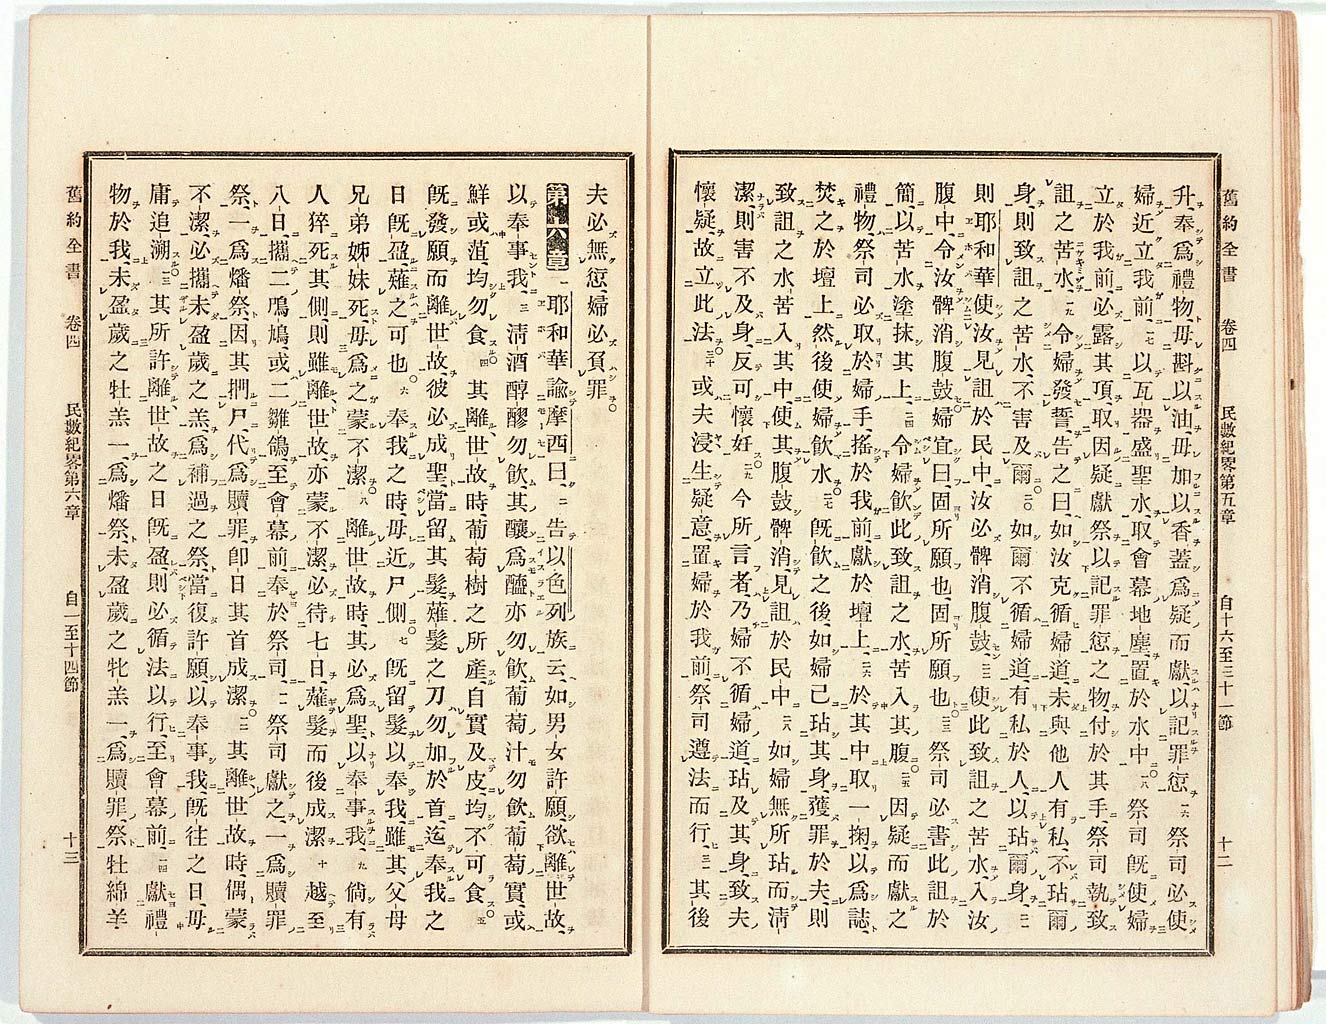 舊約全書 卷四 民數紀畧第五章 自十六至三十一節 十二
升、奉爲禮物、毋斟以油、毋加以香、蓋爲疑而獻、以記罪愆、一六祭司必使
婦近立我前、一七以瓦器盛聖水、取會幕地塵、置於水中、一八祭司既使婦
立於我前、必露其項、取因疑獻祭、以記罪愆之物、付於其手、祭司執致
詛之苦水、一九令婦發誓、告之曰、如汝克循婦道、未與他人有私、不玷爾
身、則致詛之苦水、不害及爾、二〇如爾不循婦道、有私於人、以玷爾身、二一
則耶和華使汝見詛於民中、汝必髀消腹鼓、二二使此致詛之苦水、入汝
腹中、令汝髀消腹鼓、婦宜曰、固所願也、固所願也、二三祭司必書此詛於
簡、以苦水塗抹其上、二四令婦飲此致詛之水、苦入其腹、二五因疑而獻之
禮物、祭司必取於婦手、搖於我前、獻於壇上、二六於其中取一掬、以爲誌、
焚之於壇上、然後使婦飲水、二七既飲之後、如婦已玷其身、獲罪於夫、則
致詛之水、苦入其中、使其腹鼓髀消、見詛於民中、二八如婦無所玷而清
潔、則害不及身、反可懷妊、二九今所言者、乃婦不循婦道、玷及其身、致夫
懷疑、故立此法、三十或夫浸生疑意、置婦於我前、祭司遵法而行、三一其後
夫必無愆、婦必負罪
第六章 一耶和華諭摩西曰、二告以色列族云、如男女許願、欲離世故、
以奉事我、三清酒醇醪勿飲、其釀爲醯亦勿飲、葡萄汁勿飲、葡萄實、或
鮮或萡、均勿食、四其離世故時、葡萄樹之所產、自實及皮、均不可食、五
既發願而離世故、彼必成聖、當留其髮、薙髮之刀、勿加於首、迄奉我之
日既盈、薙之可也、六奉我之時、毋近尸側、七既留髮以奉我、雖其父母
兄弟姊妹死、毋爲之蒙不潔、八離世故時、其必爲聖、以奉事我、九倘有
人猝死其側、則雖離世故、亦蒙不潔、必待七日、薙髮而後成潔、十越至
八日、攜二鳲鳩、或二雛鴿、至會幕前、奉於祭司、十一祭司獻之、一爲贖罪
祭、一爲燔祭、因其捫尸、代爲贖罪、卽日其首成潔、十二其離世故時、偶蒙
不潔、必攜未盈歲之羔、爲補過之祭、當復許願、以奉事我、既往之日、毋
庸追溯、十三其所許離世故之日既盈、則必循法以行、至會幕前、十四獻禮
物於我、未盈歲之牡羔一、爲燔祭、未盈歲之牝羔一、爲贖罪祭、牡綿羊
舊約全書 卷四 民數紀畧第六章 自一至十四節 十三